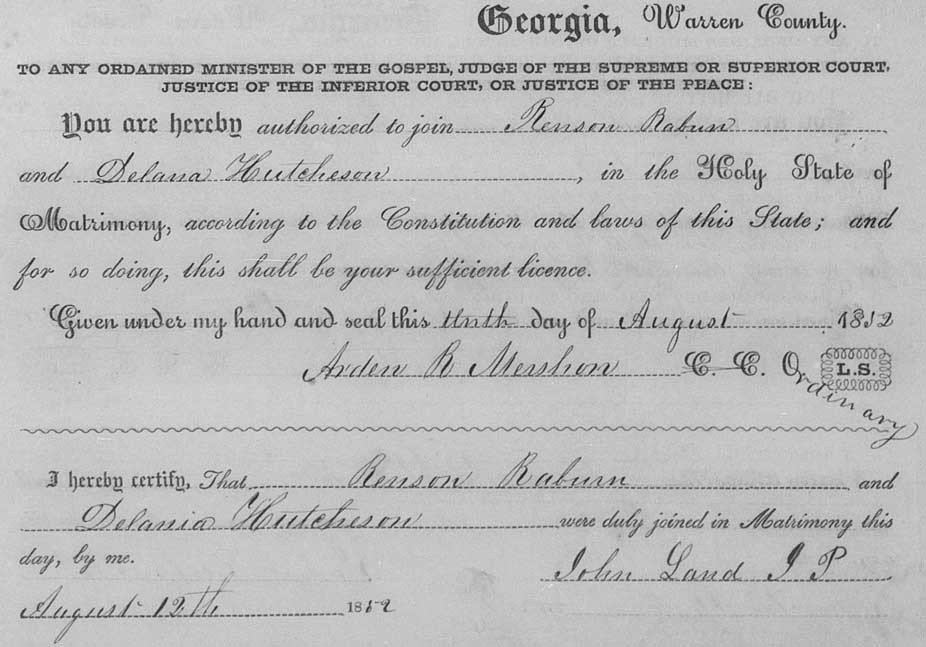 Georgia, Warren County.
TO ANY ORDAINED MINISTER OF THE GOSPEL, JUDGE OF THE SUPREME OR SUPERIOR COURT,
JUSTICE OF THE INFERIOR COURT, OR JUSTICE OF THE PEACE:
You are hereby authorized to join Renson Rabun
and Delana Hutcheson, in the Holy State of
Matrimony, according to the Constitution and laws of this State; and
for so doing, this shall be your sufficient licence.
Given under my hand and seal this tenth day of August 1852
Arden R Mershon C. C. O. L.S.
Ordinary
I hereby certify, That Renson Raburn and
Delania Hutcheson were duly joined in Matrimony this
day, by me. John Land J P
August 12th 1852